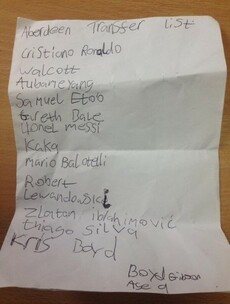 Aberdeen Transfer list
Cristiano Ronaldo
Walcott
Aubameyang
Samuel Etoo
Gareth Bale
Lionel messi
Kaka
Mario Balotelli
Robert
Lewandowski
Zlatan ibrahimović
thiago silva
Kris Boyd
Boyd
Age 9